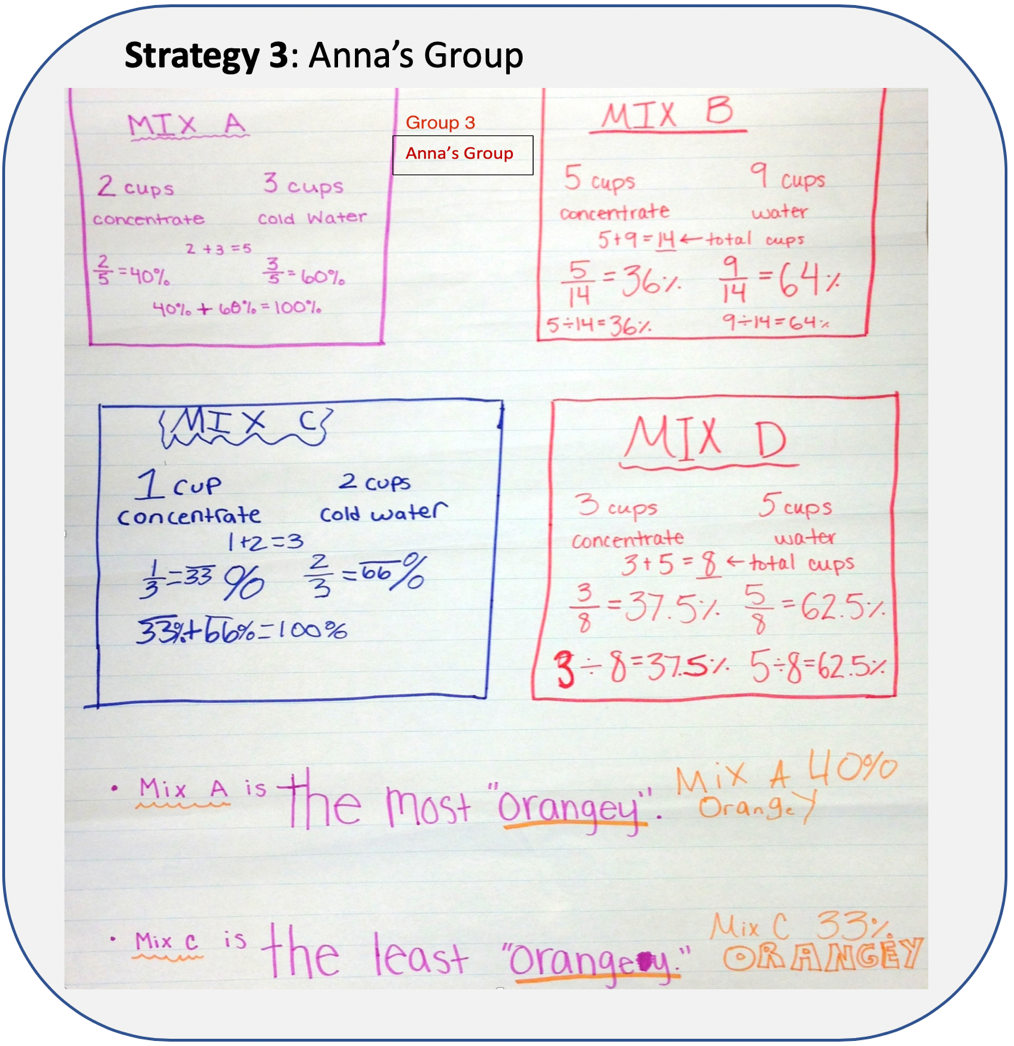 Strategy 3: Anna's Group
MIX A
2 cups 3 cups
concentrate cold water
2 + 3 = 5
2/5 = 40% 3/5 = 60%
40% + 60% = 100%
Group 3
Anna's Group
MIX B
5 cups 9 cups
concentrate water
5+9 = 14 ← total cups
5/14 = 36% 9/14 = 64%
5÷14 = 36% 9÷14 = 64%
{MIX C}
1 cup 2 cups
concentrate cold water
1+2 = 3
1/3 = 3̅3̅ % 2/3 = 6̅6̅ %
3̅3̅% + 6̅6̅% = 100%
MIX D
3 cups 5 cups
concentrate water
3+5 = 8 ← total cups
3/8 = 37.5% 5/8 = 62.5%
3 ÷ 8 = 37.5% 5÷8 = 62.5%
• Mix A is the most "orangey". Mix A 40%
Orangey
• Mix C is the least "orangey." Mix C 33%
ORANGEY